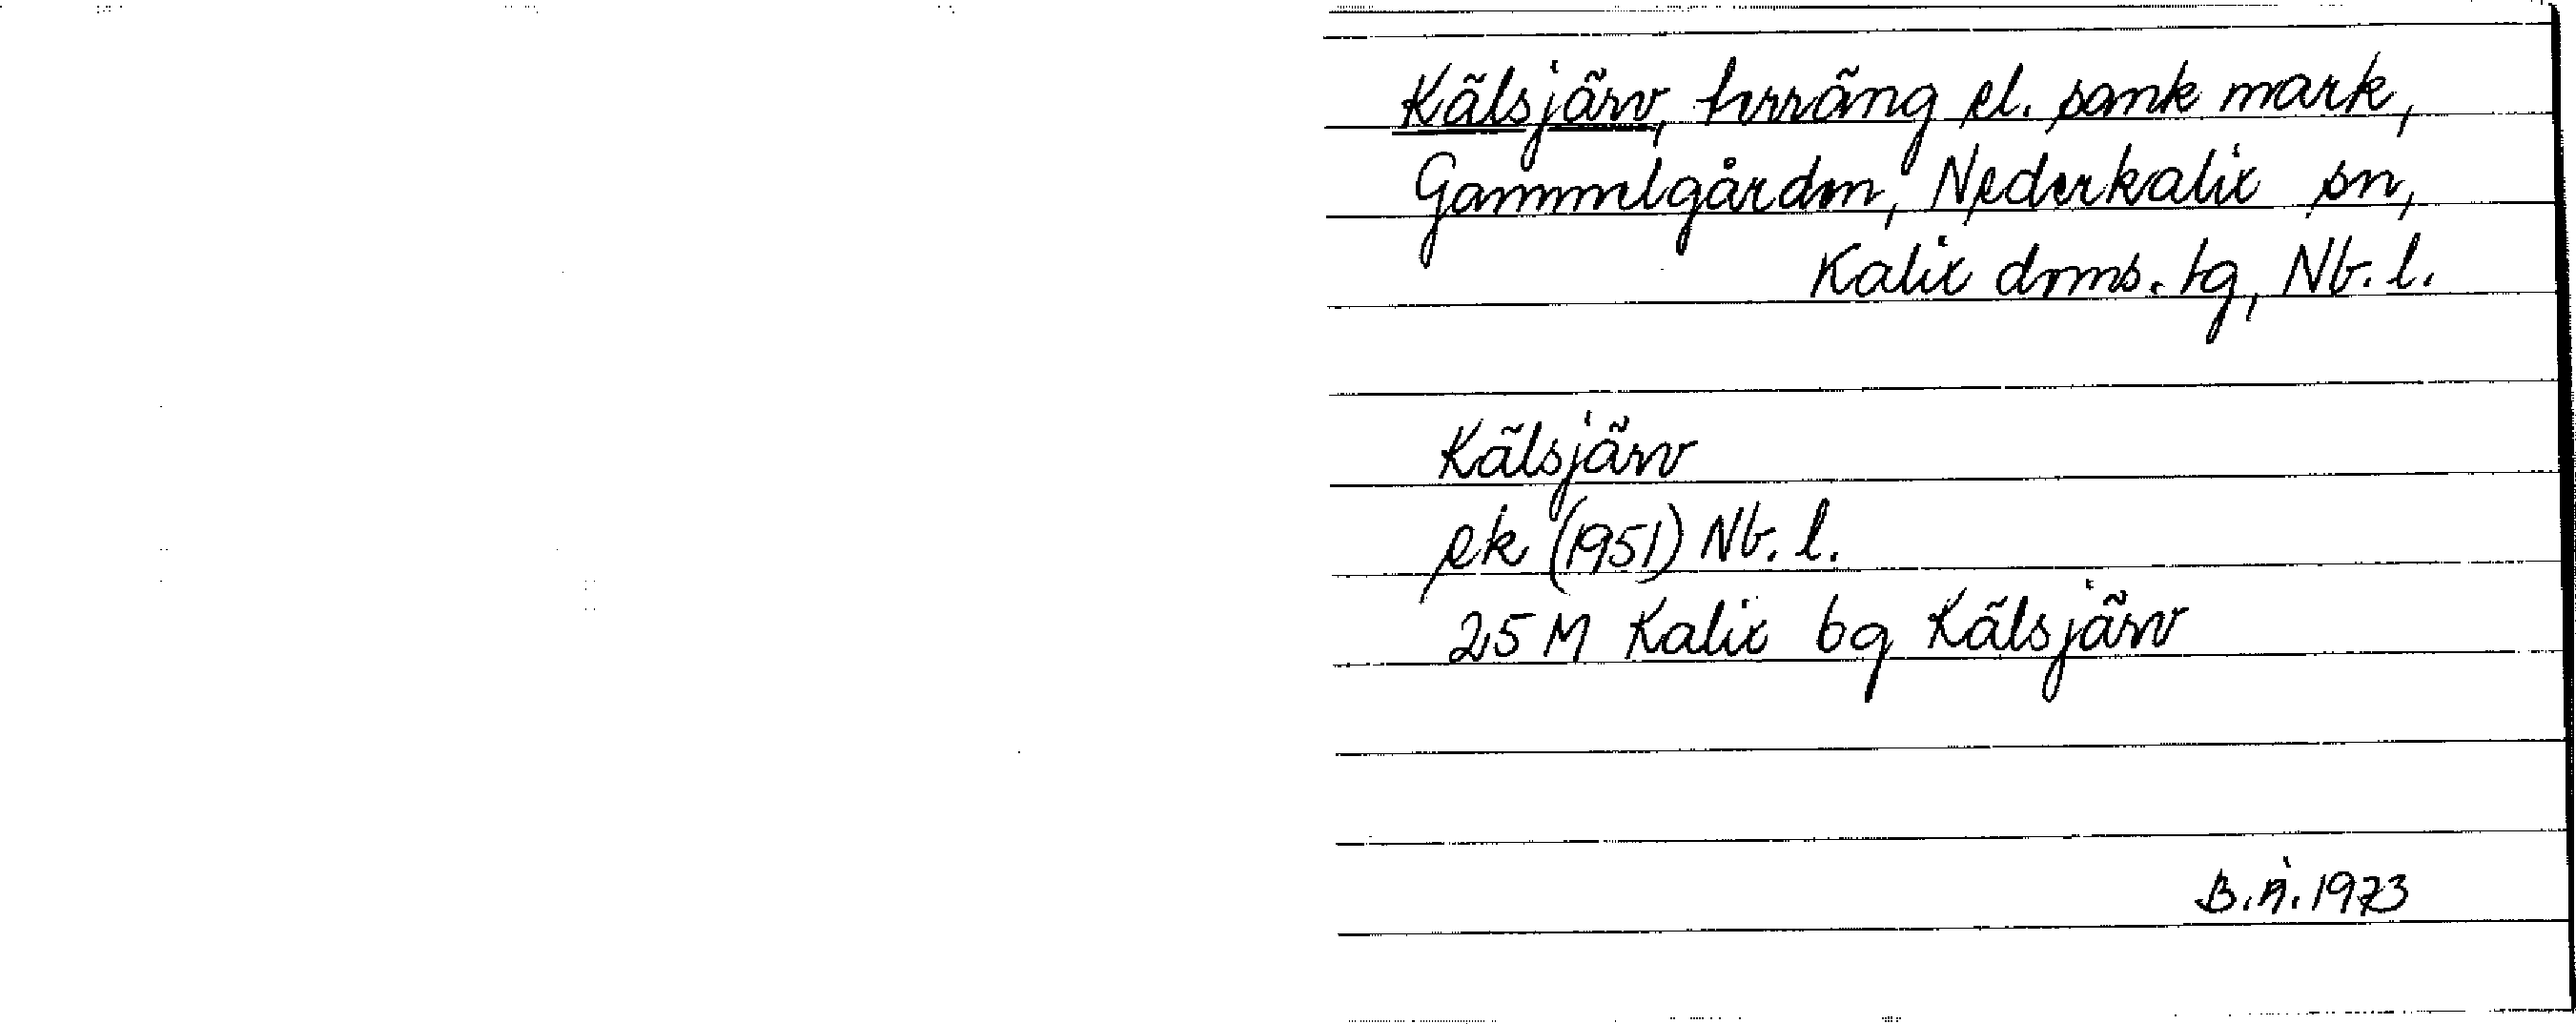 Kälsjärv, torräng el. sank mark,
Gammelgården, Nederkalix sn,
Kalix doms. tg, Nb. l.
Kälsjärv
ek (1951) Nb. l.
25 M Kalix 6g Kälsjärv
1973